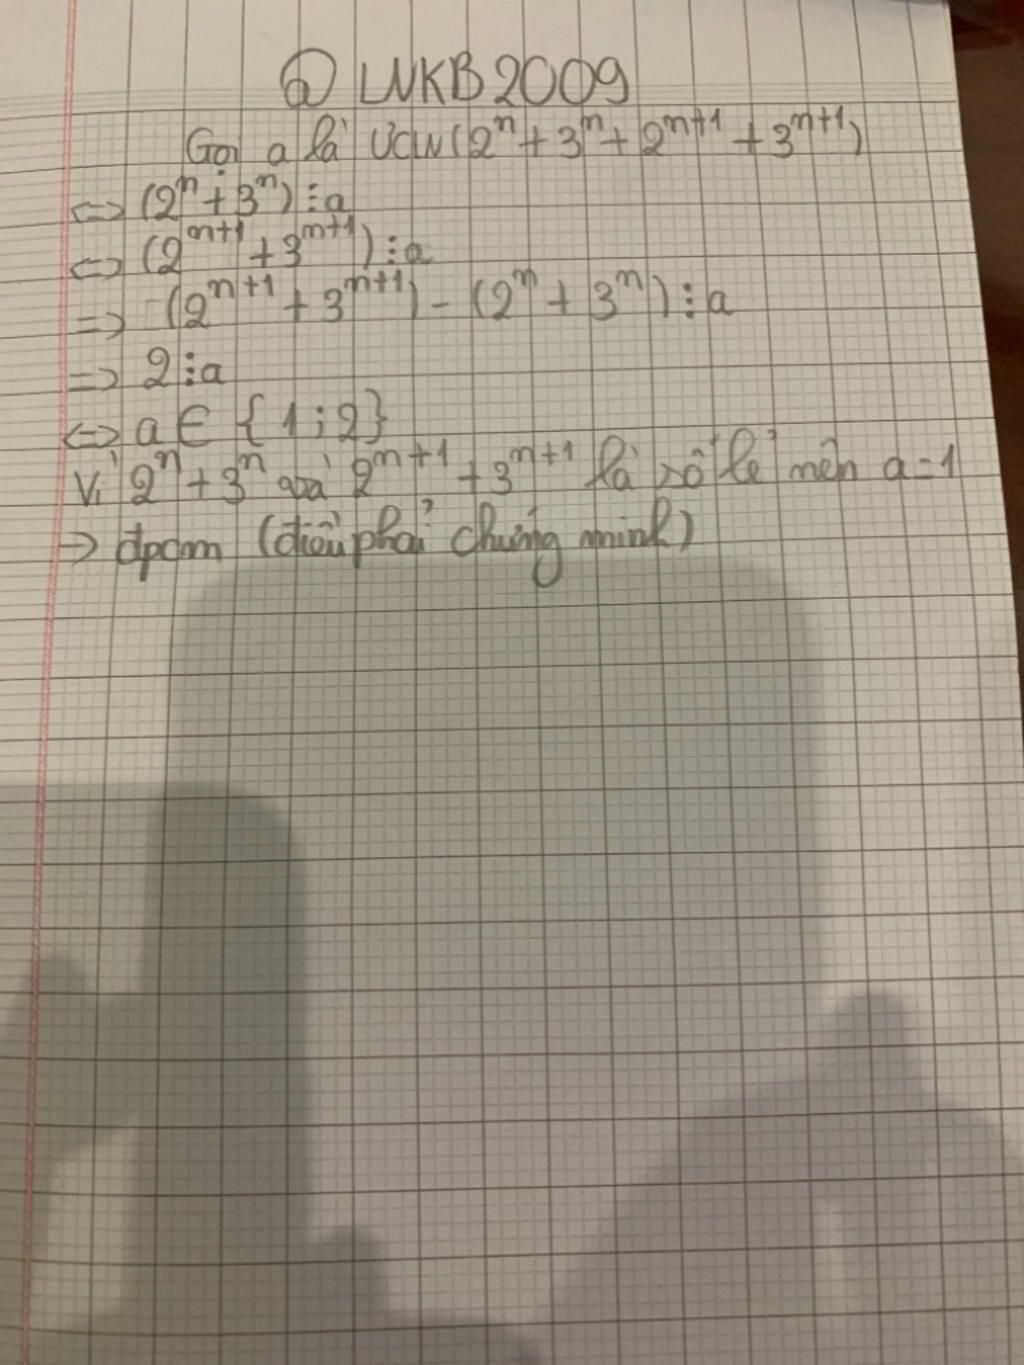 @ LNKB2009
Gọi a là ƯCLN(2ⁿ + 3ⁿ + 2ⁿ⁺¹ + 3ⁿ⁺¹)
<=> (2ⁿ + 3ⁿ) ⋮ a
<=> (2ⁿ⁺¹ + 3ⁿ⁺¹) ⋮ a
=> (2ⁿ⁺¹ + 3ⁿ⁺¹) - (2ⁿ + 3ⁿ) ⋮ a
=> 2 ⋮ a
<=> a ∈ {1; 2}
Vì 2ⁿ + 3ⁿ và 2ⁿ⁺¹ + 3ⁿ⁺¹ là số lẻ nên a = 1
-> đpcm (điều phải chứng minh)